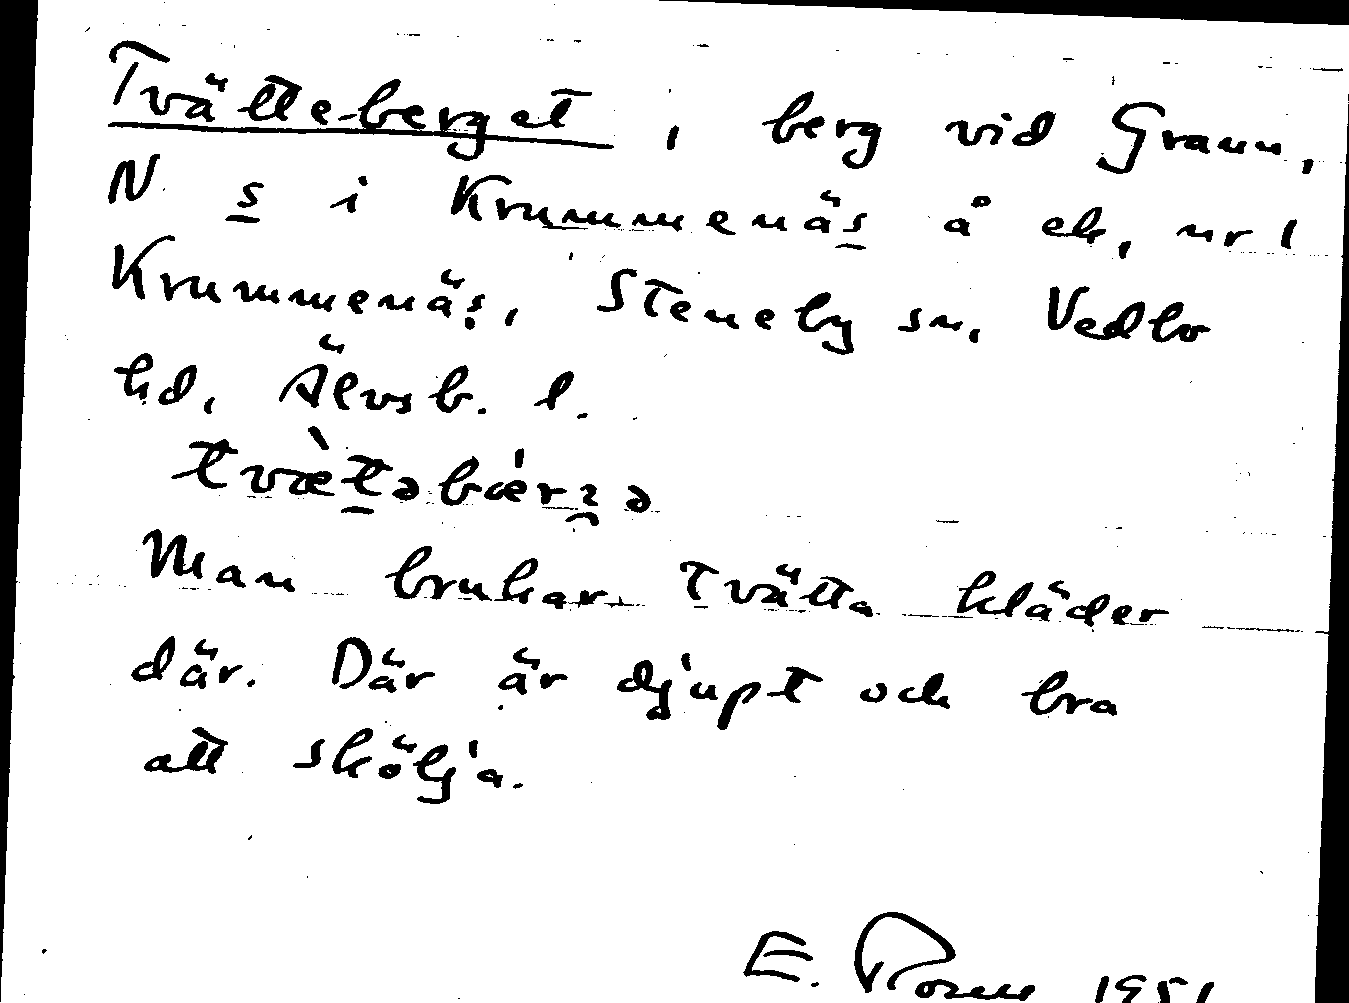 Tvätteberget, berg vid Graun,
N s i Krummenäs å ek, nr 1
Krummenäs, Steneby sn, Vedbo
hd, Älvsb. l.
Man brukar tvätta kläder
där. Där är djupt och bra
att skölja.
E. 1951